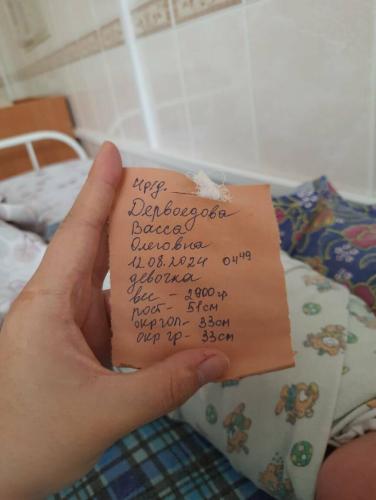 Дервоедова
Васса
Олеговна
12.08.2024 04 49
девочка
вес - 2900 гр
рост - 51 см
окр гол - 33 см
окр гр - 33 см